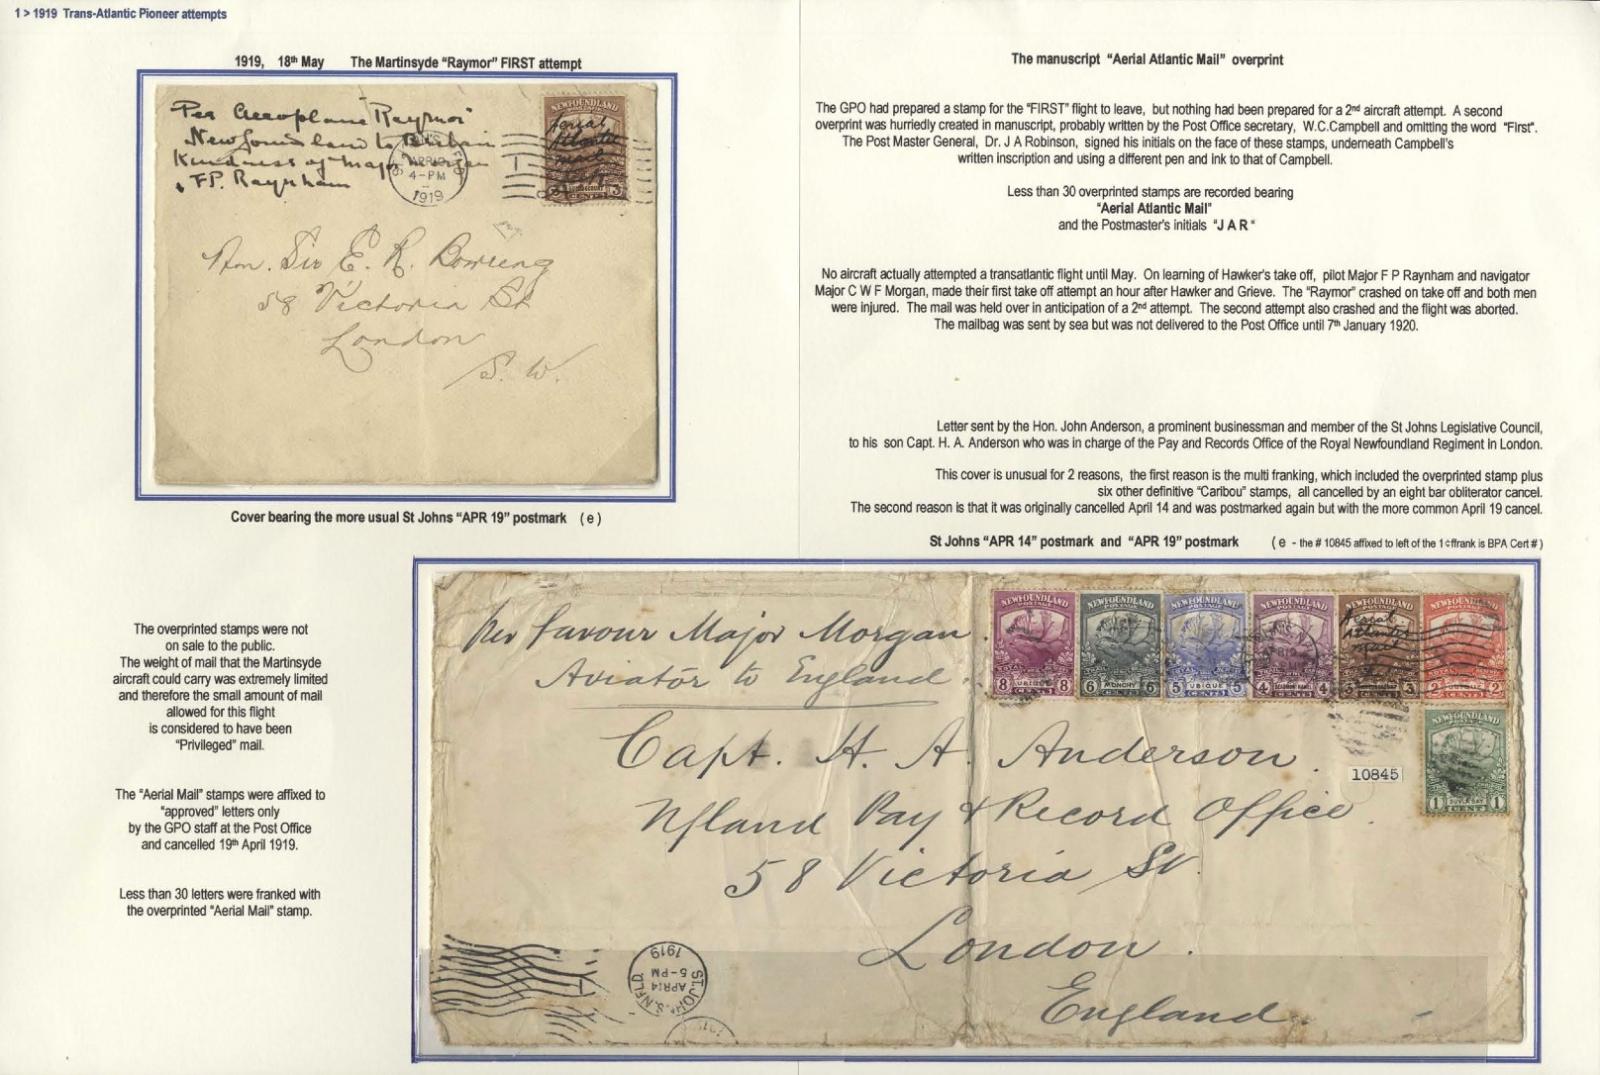 1 > 1919 Trans-Atlantic Pioneer attempts
1919, 18th May The Martinsyde “Raymor” FIRST attempt
Per Aeroplane "Raymor"
Newfoundland to Britain
Kindness of Major Morgan
& F.P. Raynham
APR 19
4-PM
1919
NEWFOUNDLAND
Aerial
Atlantic
Mail
3 CENTS 3
Hon. Sir E. R. Bowring
58 Victoria St
London
S. W.
Cover bearing the more usual St Johns “APR 19” postmark (e)
The overprinted stamps were not
on sale to the public.
The weight of mail that the Martinsyde
aircraft could carry was extremely limited
and therefore the small amount of mail
allowed for this flight
is considered to have been
“Privileged” mail.
The “Aerial Mail” stamps were affixed to
“approved” letters only
by the GPO staff at the Post Office
and cancelled 19th April 1919.
Less than 30 letters were franked with
the overprinted “Aerial Mail” stamp.
The manuscript “Aerial Atlantic Mail” overprint
The GPO had prepared a stamp for the “FIRST” flight to leave, but nothing had been prepared for a 2nd aircraft attempt. A second
overprint was hurriedly created in manuscript, probably written by the Post Office secretary, W.C.Campbell and omitting the word “First”.
The Post Master General, Dr. J A Robinson, signed his initials on the face of these stamps, underneath Campbell's
written inscription and using a different pen and ink to that of Campbell.
Less than 30 overprinted stamps are recorded bearing
“Aerial Atlantic Mail”
and the Postmaster's initials “J A R“
No aircraft actually attempted a transatlantic flight until May. On learning of Hawker's take off, pilot Major F P Raynham and navigator
Major C W F Morgan, made their first take off attempt an hour after Hawker and Grieve. The “Raymor” crashed on take off and both men
were injured. The mail was held over in anticipation of a 2nd attempt. The second attempt also crashed and the flight was aborted.
The mailbag was sent by sea but was not delivered to the Post Office until 7th January 1920.
Letter sent by the Hon. John Anderson, a prominent businessman and member of the St Johns Legislative Council,
to his son Capt. H. A. Anderson who was in charge of the Pay and Records Office of the Royal Newfoundland Regiment in London.
This cover is unusual for 2 reasons, the first reason is the multi franking, which included the overprinted stamp plus
six other definitive “Caribou” stamps, all cancelled by an eight bar obliterator cancel.
The second reason is that it was originally cancelled April 14 and was postmarked again but with the more common April 19 cancel.
St Johns “APR 14” postmark and “APR 19” postmark (e - the # 10845 affixed to left of the 1¢ffrank is BPA Cert #)
Per favour Major Morgan.
Aviator to England
NEWFOUNDLAND POSTAGE 8 UBIQUE 8 CENTS
NEWFOUNDLAND POSTAGE 6 MONCHY 6 CENTS
NEWFOUNDLAND POSTAGE 5 UBIQUE 5 CENTS
NEWFOUNDLAND POSTAGE 4 4 CENTS
NEWFOUNDLAND POSTAGE Aerial Atlantic Mail 3 CENTS
NEWFOUNDLAND POSTAGE 2 UBIQUE 2 CENTS
NEWFOUNDLAND 1 SUVLA BAY 1 CENT
Capt. H. A. Anderson.
10845
Nfland Pay & Record Office.
58 Victoria St.
London.
England.
ST. JOHN'S. NFL'D
APR 14
5-PM
1919